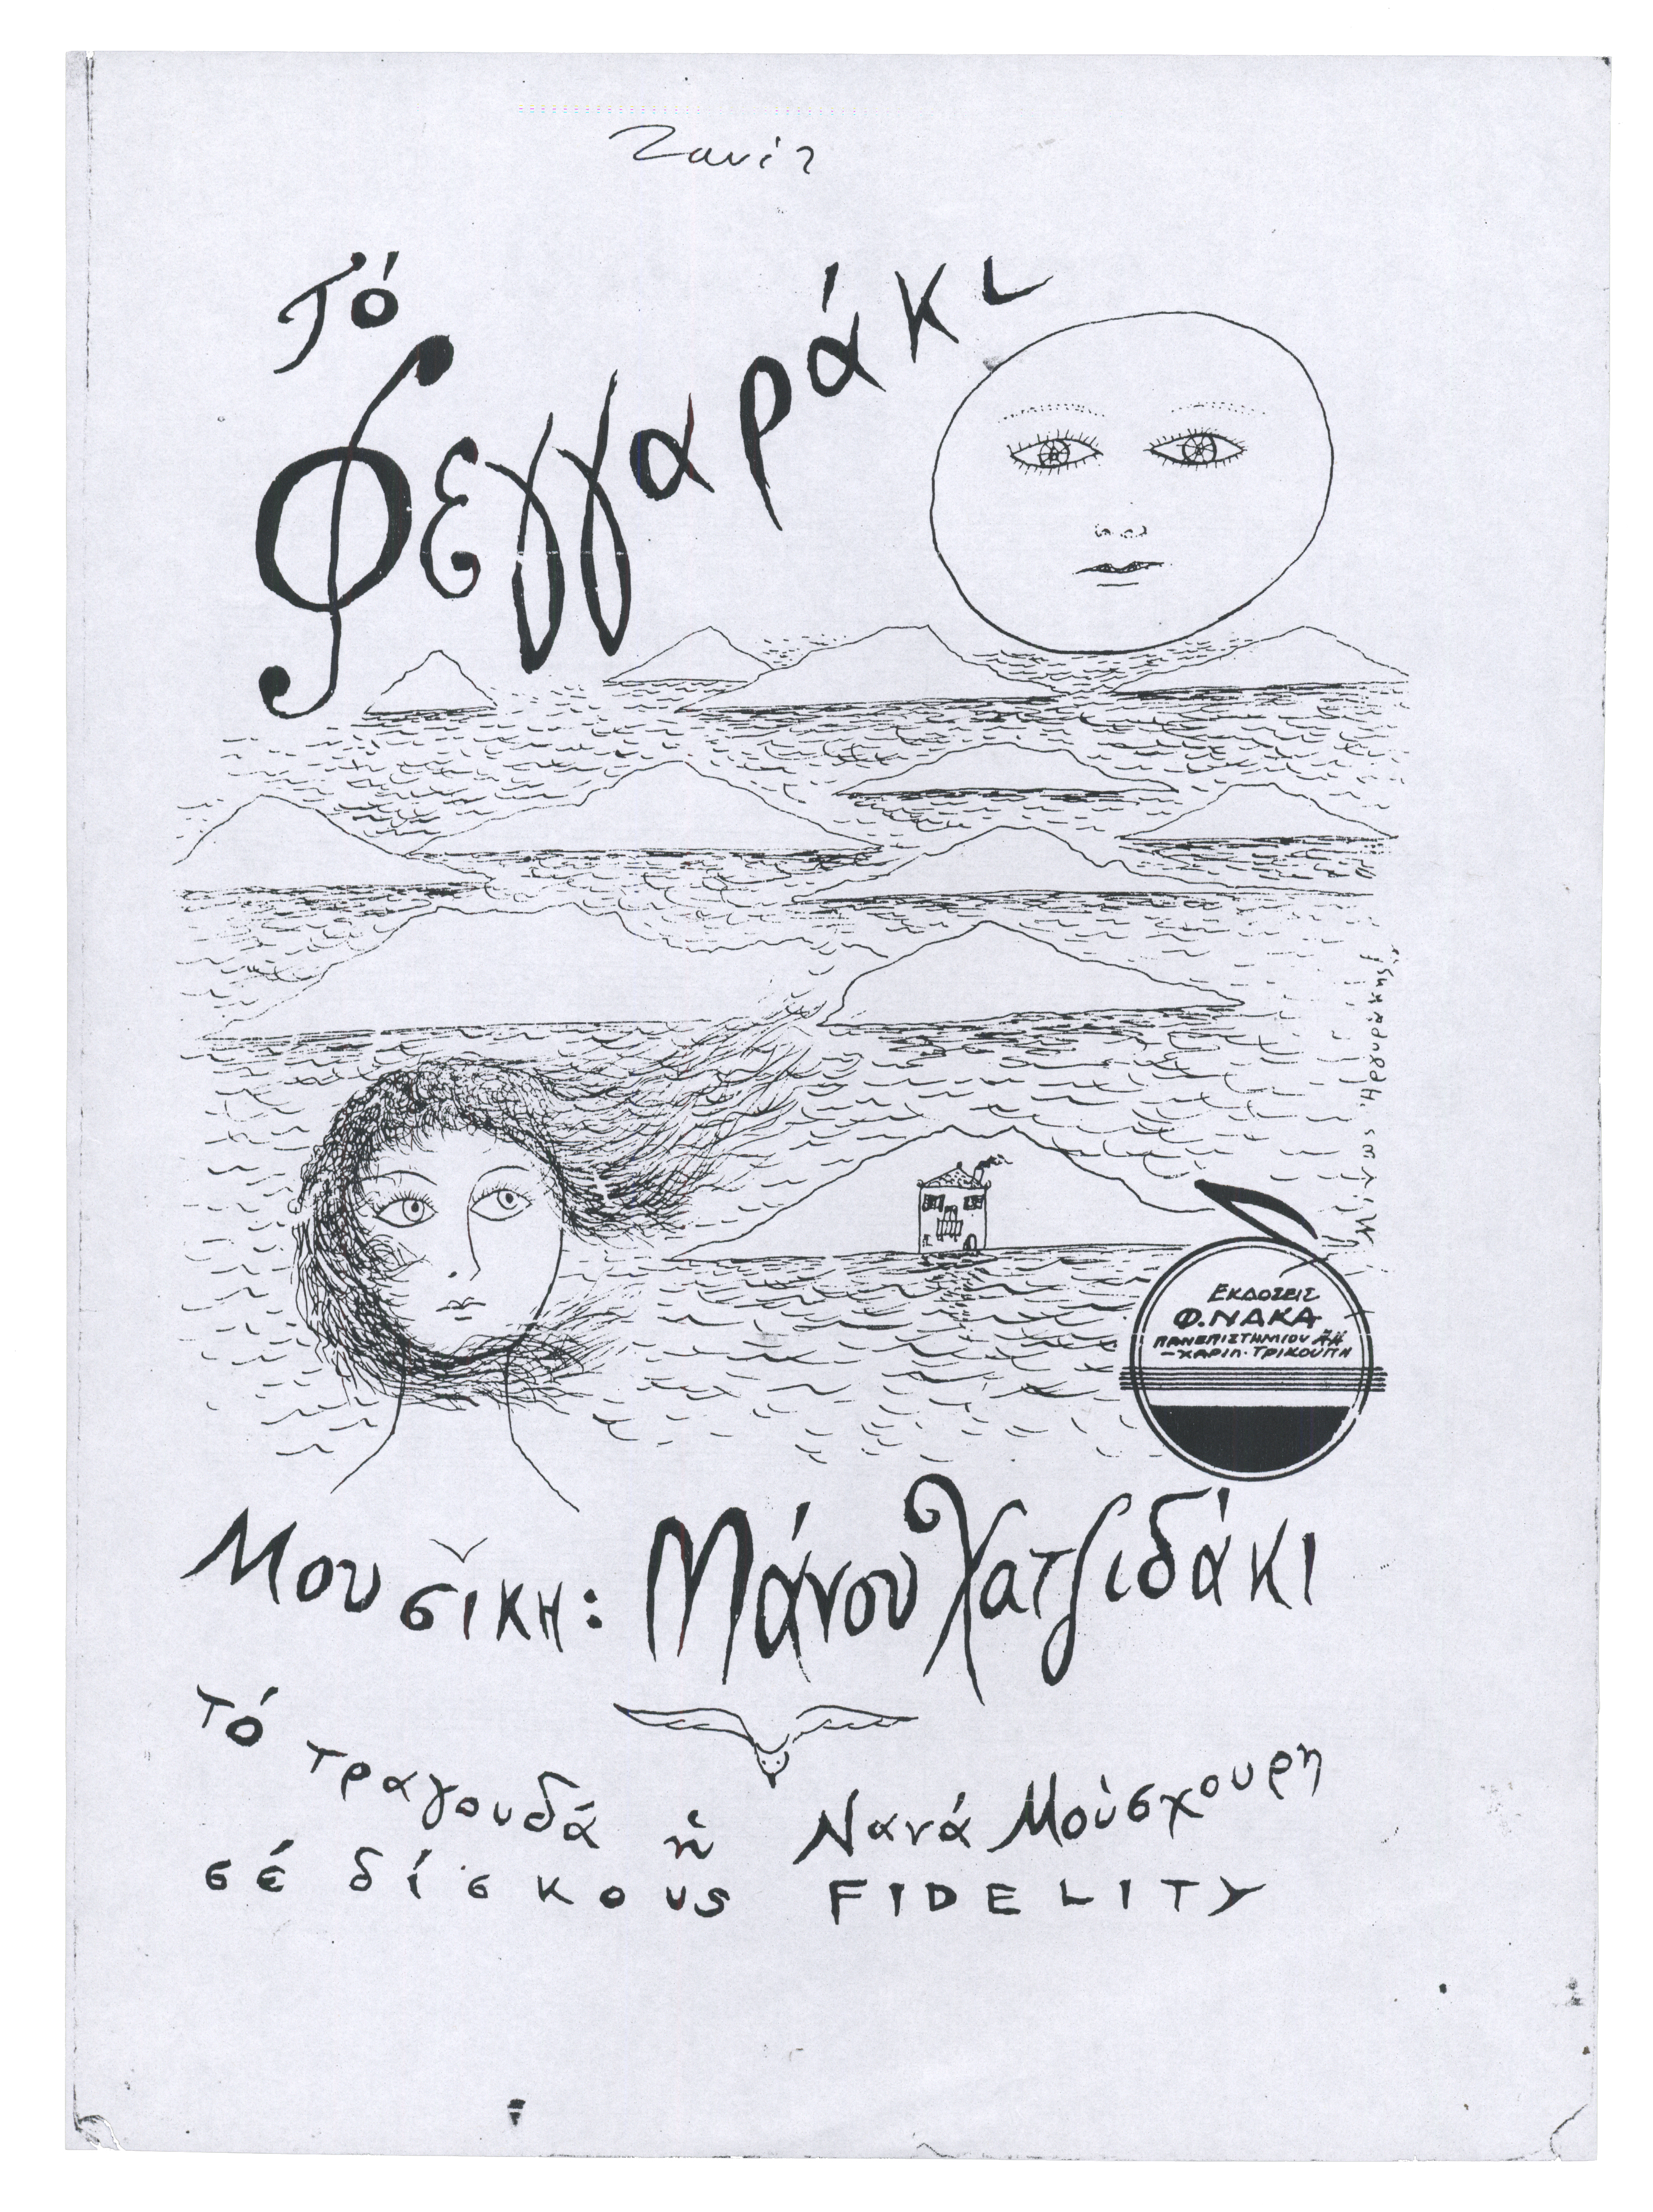 Τό
Φεγγαράκι
Μίνως Ἀργυράκης
ΕΚΔΟΣΕΙΣ
Φ. ΝΑΚΑ
ΠΑΝΕΠΙΣΤΗΜΙΟΥ 44
-ΧΑΡΙΛ. ΤΡΙΚΟΥΠΗ
Μουσικη: Μάνου Χατζιδάκι
Τό τραγουδά ἡ Νανά Μούσχουρη
σέ δίσκους FIDELITY